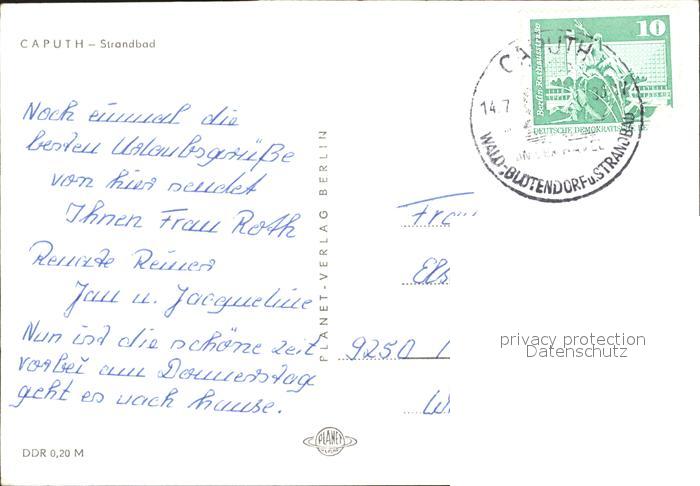 CAPUTH – Strandbad
10
Berlin, Rathausstraße
DEUTSCHE DEMOKRATIS
CAPUTH
14.7
WALD-, BLÜTENDORF u. STRANDBAD
Noch einmal die
besten Urlaubsgrüße
von hier sendet
Ihnen Frau Roth
Renate Reiner
Jan u. Jacqueline
Nun ist die schöne Zeit
vorbei am Donnerstag
geht es nach hause.
PLANET-VERLAG BERLIN
Fra
Els
9250
privacy protection
Datenschutz
PLANET
DDR 0,20 M